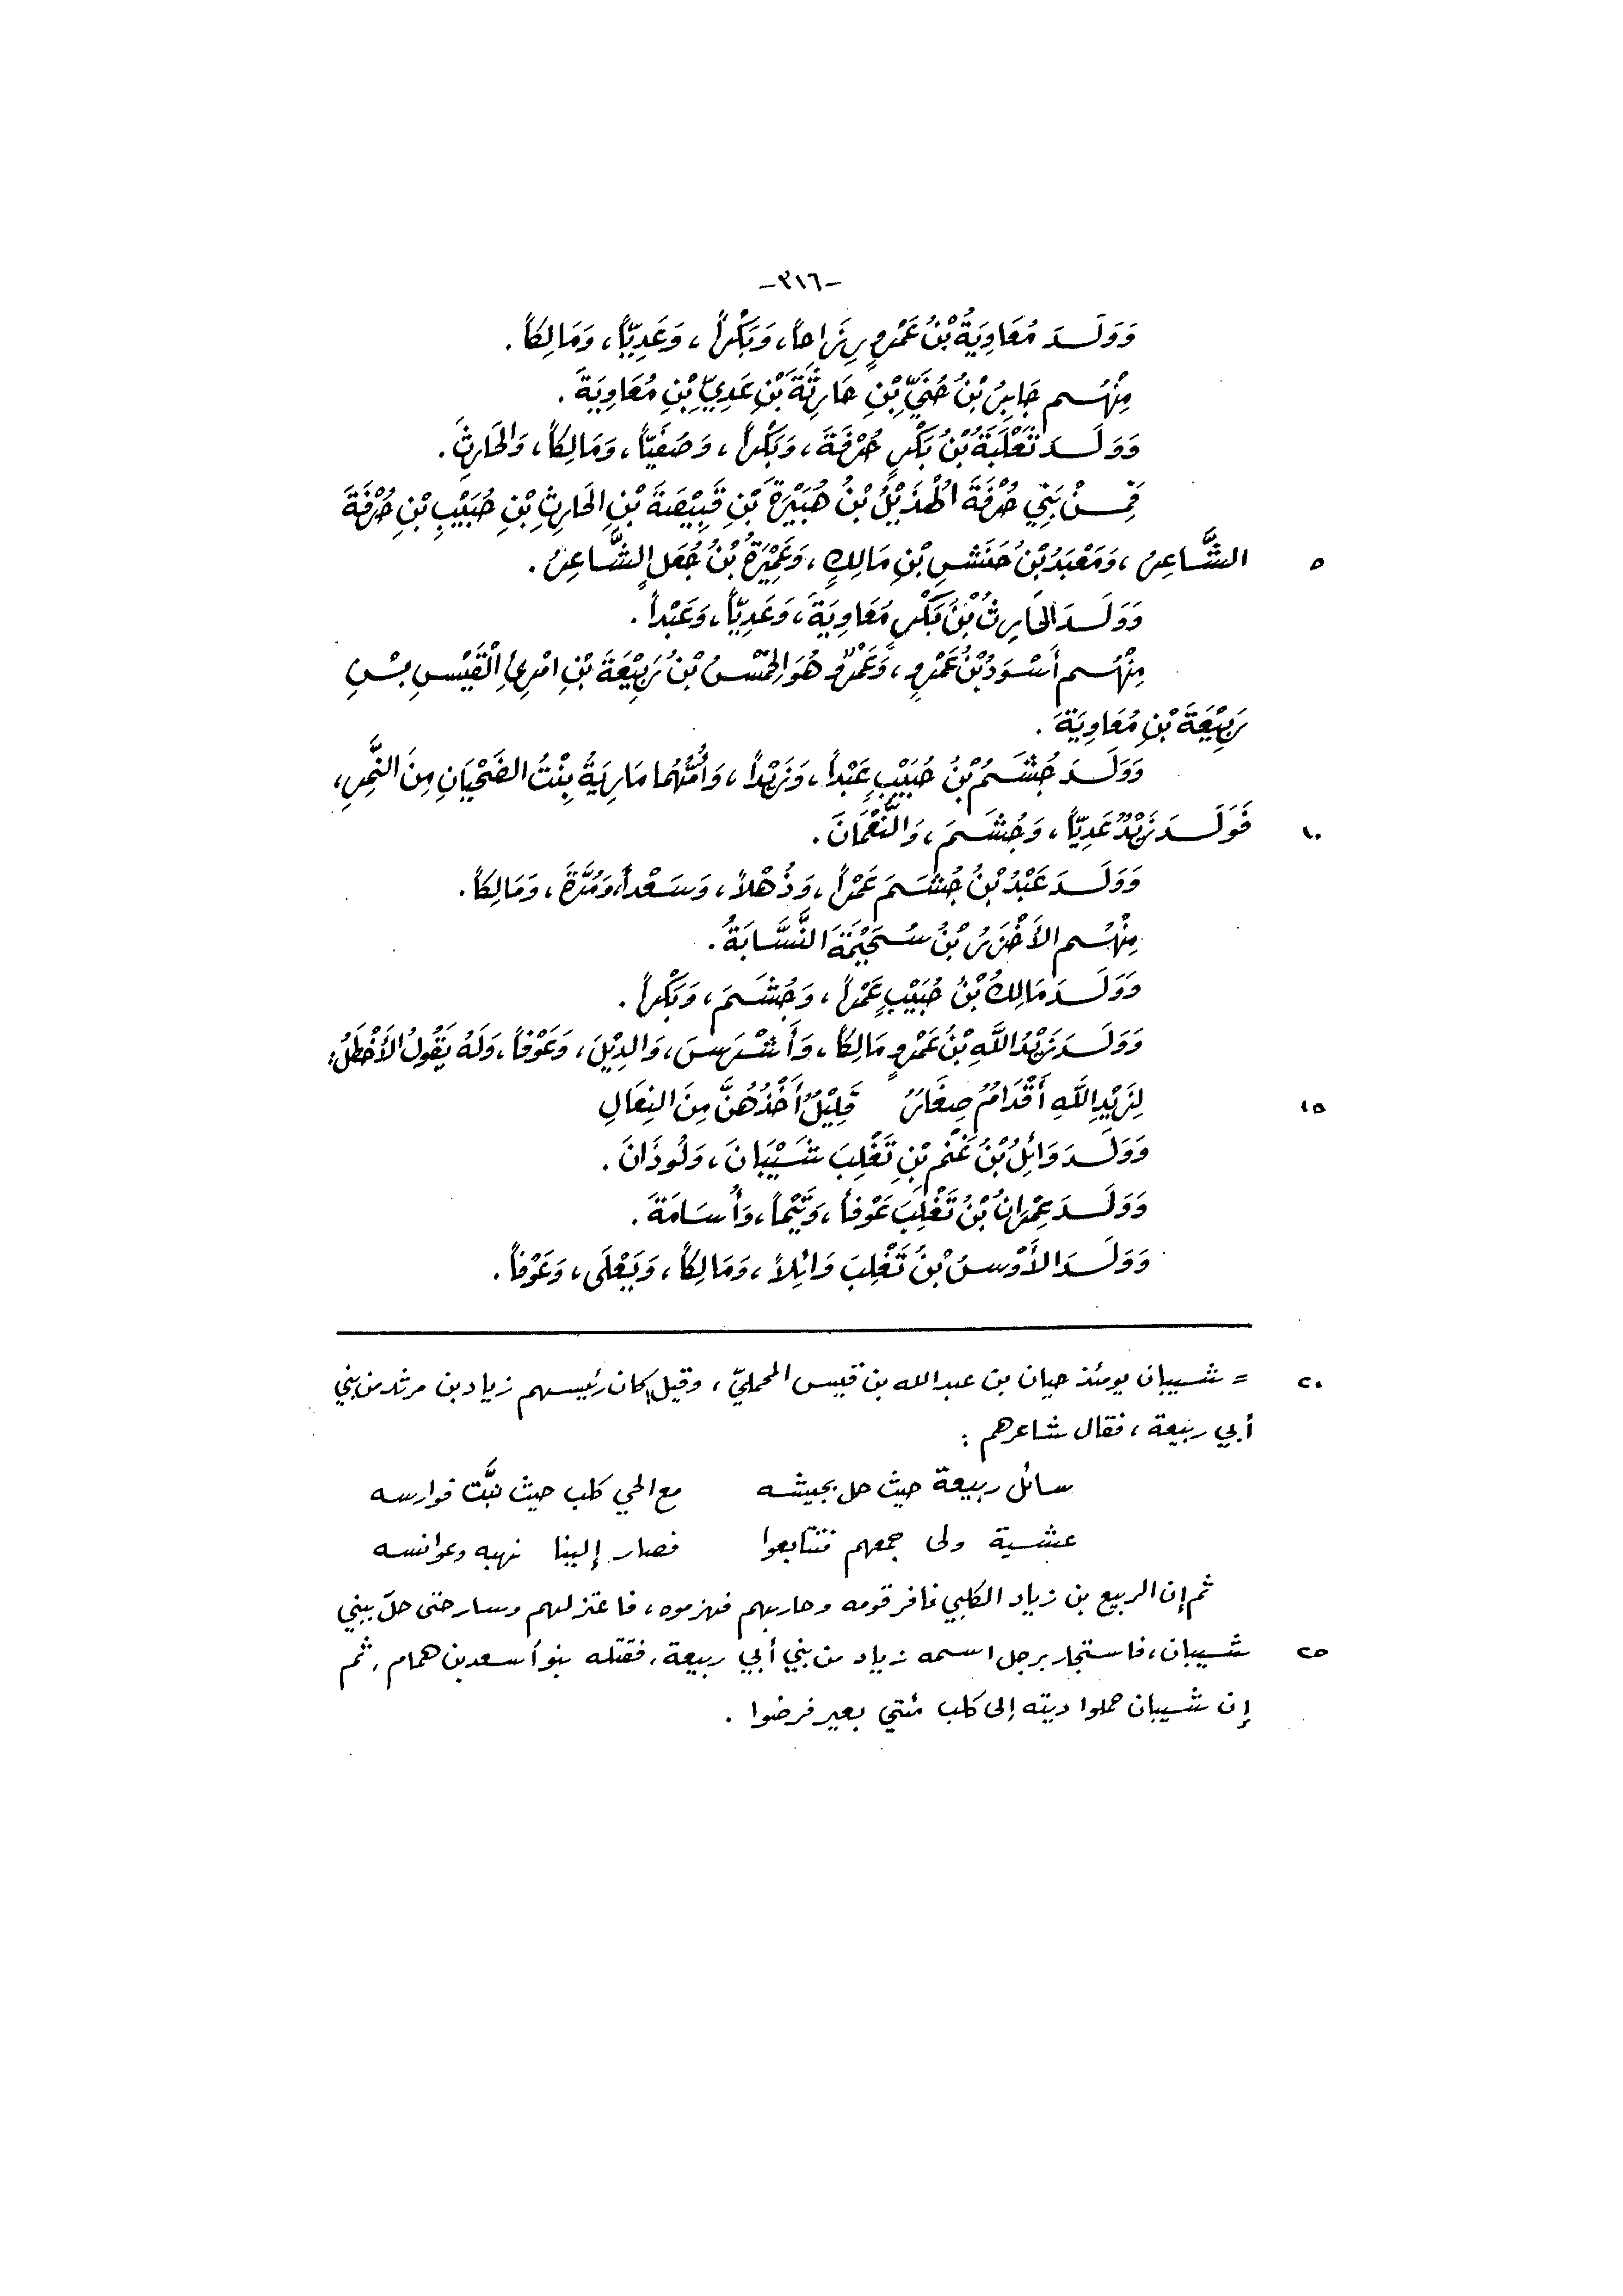 -٣١٦-
وَوَلَدَ مُعَاوِيَةُ بْنُ عَمْرٍو رِزَاحاً، وَبَكْراً، وَعَدِيّاً، وَمَالِكاً.
مِنْهُم جَابِرُ بْنُ حُنَيِّ بْنِ حَارِثَةَ بْنِ عَدِيِّ بْنِ مُعَاوِيَةَ.
وَوَلَدَ ثَعْلَبَةُ بْنُ بَكْرٍ حُرْفَةَ، وَبَكْراً، وَصُفَيّاً، وَمَالِكاً، وَالحَارِثَ.
فَمِنْ بَنِي حُرْفَةَ الهُذَيْلُ بْنُ هُبَيْرَةَ بْنِ قَبِيْصَةَ بْنِ الحَارِثِ بْنِ حُبَيْبِ بْنِ حُرْفَةَ
٥ الشَّاعِرُ، وَمَعْبَدُ بْنُ حَنَشِ بْنِ مَالِكٍ، وَعَمِيْرَةُ بْنُ جُعَلٍ الشَّاعِرُ.
وَوَلَدَ الحَارِثُ بْنُ بَكْرٍ مُعَاوِيَةَ، وَعَدِيّاً، وَعَبْداً.
مِنْهُم أَسْوَدُ بْنُ عَمْرٍو، وَعَمْرٌو هُوَ الحِمْسُ بْنُ رَبِيْعَةَ بْنِ امْرِئِ القَيْسِ بْنِ
رَبِيْعَةَ بْنِ مُعَاوِيَةَ.
وَوَلَدَ جُشَمُ بْنُ حُبَيْبٍ عَبْداً، وَزَيْداً، وَأُمُّهُما مَارِيَةُ بِنْتُ الضَحْيَانِ مِنَ النَّمِرِ،
١٠ فَوَلَدَ زَيْدٌ عَدِيّاً، وَجُشَمَ، وَالنُّعْمَانَ.
وَوَلَدَ عَبْدُ بْنُ جُشَمَ عَمْراً، وَذُهْلاً، وَسَعْداً، وَمُرَّةَ، وَمَالِكاً.
مِنْهُم الأَخْزَرُ بْنُ سُحَيْمَةَ النَّسَّابَةُ.
وَوَلَدَ مَالِكُ بْنُ حُبَيْبٍ عَمْراً، وَجُشَمَ، وَبَكْراً.
وَوَلَدَ زَيْدُ اللَّهِ بْنُ عَمْرٍو مَالِكاً، وَأَشْرَسَ، وَالدِيْلَ، وَعَوْفاً، وَلَهُ يَقُولُ الأَخْطَلُ:
١٥ لِزَيْدِ اللَّهِ أَقْدَامٌ صِغَارٌ قَلِيْلٌ أَخْذُهُنَّ مِنَ النِعَالِ
وَوَلَدَ وَائِلُ بْنُ غَنْمِ بْنِ تَغْلِبَ شَيْبَانَ، وَلُوذَانَ.
وَوَلَدَ عِمْرَانُ بْنُ تَغْلِبَ عَوْفاً، وَتَيْماً، وَأُسَامَةَ.
وَوَلَدَ الأَوْسُ بْنُ تَغْلِبَ وَائِلاً، وَمَالِكاً، وَيَعْلَى، وَعَوْفاً.
٢٠ = شيبان يومئذ حيان بن عبدالله بن قيس المحمليّ، وقيل كان رئيسهم زياد بن مرثد من بني
أبي ربيعة، فقال شاعرهم:
سائل ربيعة حيث حل بجيشه مع الحي كلب حيث لبَّت فوارسه
عشية ولى جمعهم فتتابعوا فصار إلينا نهبه وعوانسه
ثم إن الربيع بن زياد الكلبي نافر قومه وحاربهم فهزموه، فاعتزلهم وسار حتى حلّ ببني
٢٥ شيبان، فاستجار برجل اسمه زياد من بني أبي ربيعة، فقتله بنو أسعد بن همام، ثم
إن شيبان حملوا ديته إلى كلب مئتي بعير فرضوا.